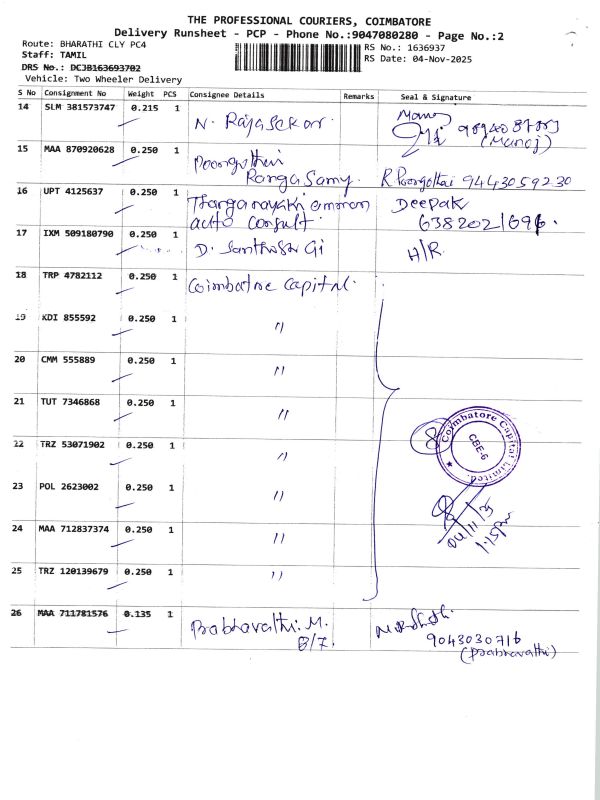 THE PROFESSIONAL COURIERS, COIMBATORE
Delivery Runsheet - PCP - Phone No.:9047080280 - Page No.:2
Route: BHARATHI CLY PC4
RS No.: 1636937
Staff: TAMIL
RS Date: 04-Nov-2025
DRS No.: DCJB163693702
Vehicle: Two Wheeler Delivery
S No Consignment No Weight PCS Consignee Details Remarks Seal & Signature
14 SLM 381573747 0.215 1 N. Rajasekar. Manoj
(Manoj)
15 MAA 870920628 0.250 1 Poongothai
Rangasamy. R. Poongothai 9443059230
16 UPT 4125637 0.250 1 Thanganayaki amman Deepak
auto consult. 6382021696.
17 IXM 509180790 0.250 1 D. Santhosh Gi H/R
18 TRP 4782112 0.250 1 Coimbatore Capital.
19 KDI 855592 0.250 1 "
20 CMM 555889 0.250 1 "
21 TUT 7346868 0.250 1 "
Coimbatore Capital Limited.
CBE-6
22 TRZ 53071902 0.250 1 "
23 POL 2623002 0.250 1 "
04/11/25
1.15pm
24 MAA 712837374 0.250 1 "
25 TRZ 120139679 0.250 1 "
26 MAA 711781576 0.135 1 Prabhavathi. M.
B/7. 9043030716
(Prabhavathi)